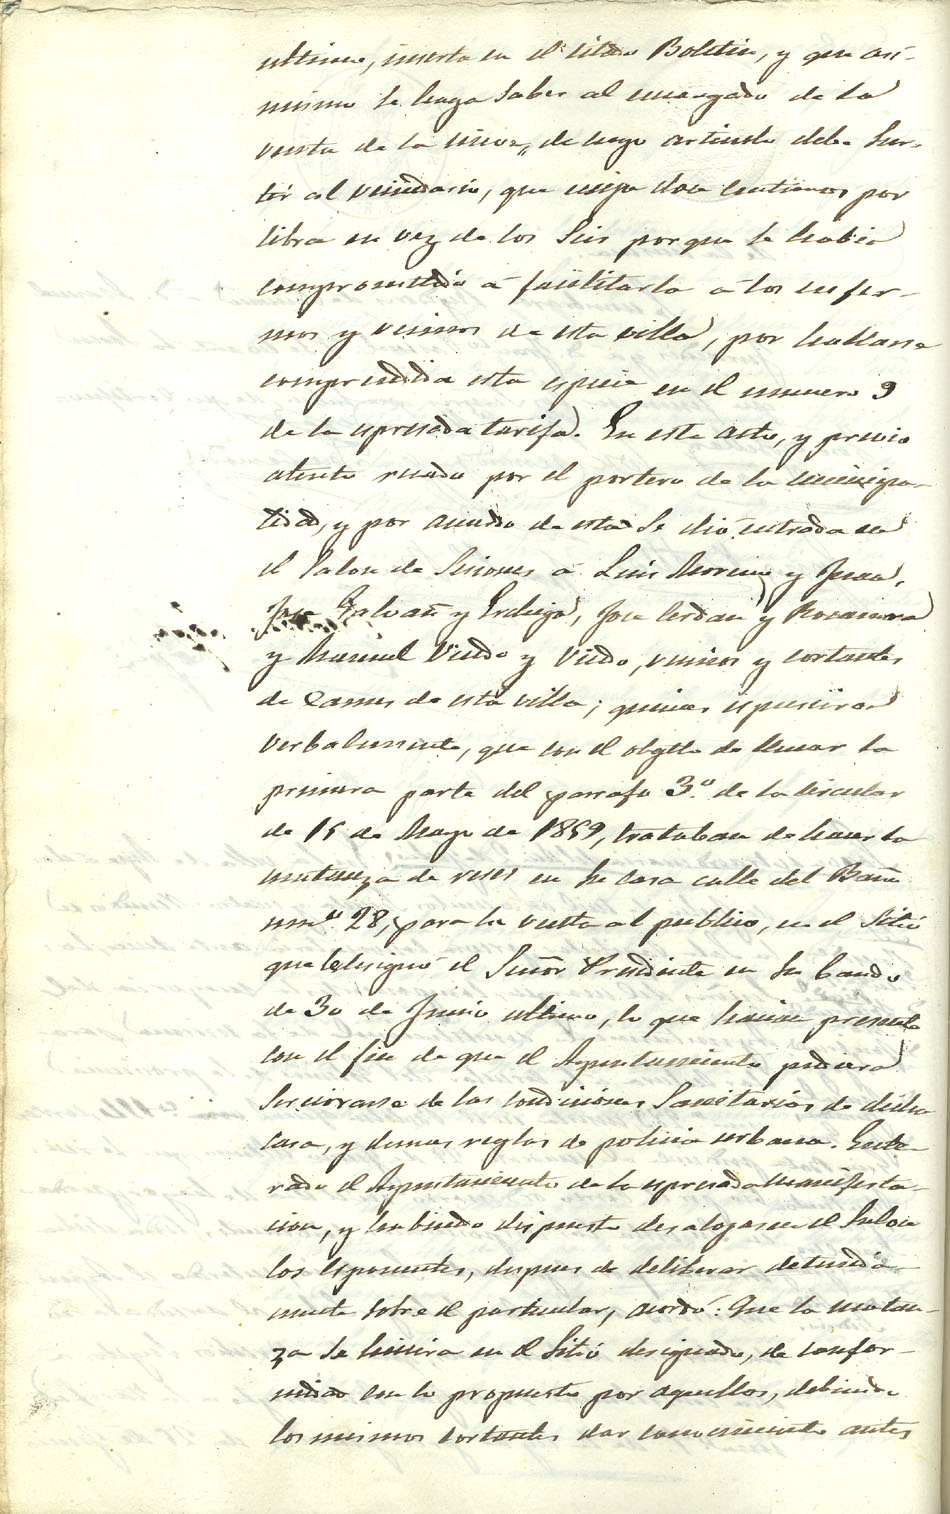 ultimo, inserta en el citado Boletin, y que asi-
mismo se haga saber al encargado de la
venta de la nieve, de cuyo articulo debe sur-
tir al vecindario, que exija doce centimos por
libra en vez de los seis porque se habia
comprometido á facilitarla á los enfer-
mos y vecinos de esta villa, por hallarse
comprendida esta especie en el numero 9
de la espresada tarifa. En este acto, y previo
atento recado por el portero de la municipa-
lidad, y por acuerdo de esta se dió entrada en
el Salon de Sesiones á Luis Moreno y Juan,
José Galvañ y Ordiga, José Cerdan y Rocamora
y Manuel Viudo y Viudo, vecinos y cortantes
de Carnes de esta villa; quienes espusieron
verbalmente, que con el objeto de llenar la
primera parte del parrafo 3.º de la circular
de 15 de Mayo de 1859, trataban de hacer la
matanza de reses en su casa calle del Baño
num.º 28, para la venta al publico, en el sitio
que le designó el Señor Presidente en su bando
de 30 de Junio ultimo, lo que hacian presente
con el fin de que el Ayuntamiento pudiera
serciorarse de las condiciones sanitarias de dicha
casa, y demas reglas de policia urbana. Ente-
rado el Ayuntamiento de la espresada manifesta-
cion, y habiendo dispuesto desalogasen el Salon
los esponentes, despues de deliberar detenida-
mente sobre el particular, acordó: Que la matan-
za se hiciera en el Sitio designado, de confor-
midad con lo propuesto por aquellos, debiendo
los mismos cortantes dar conocimiento antes